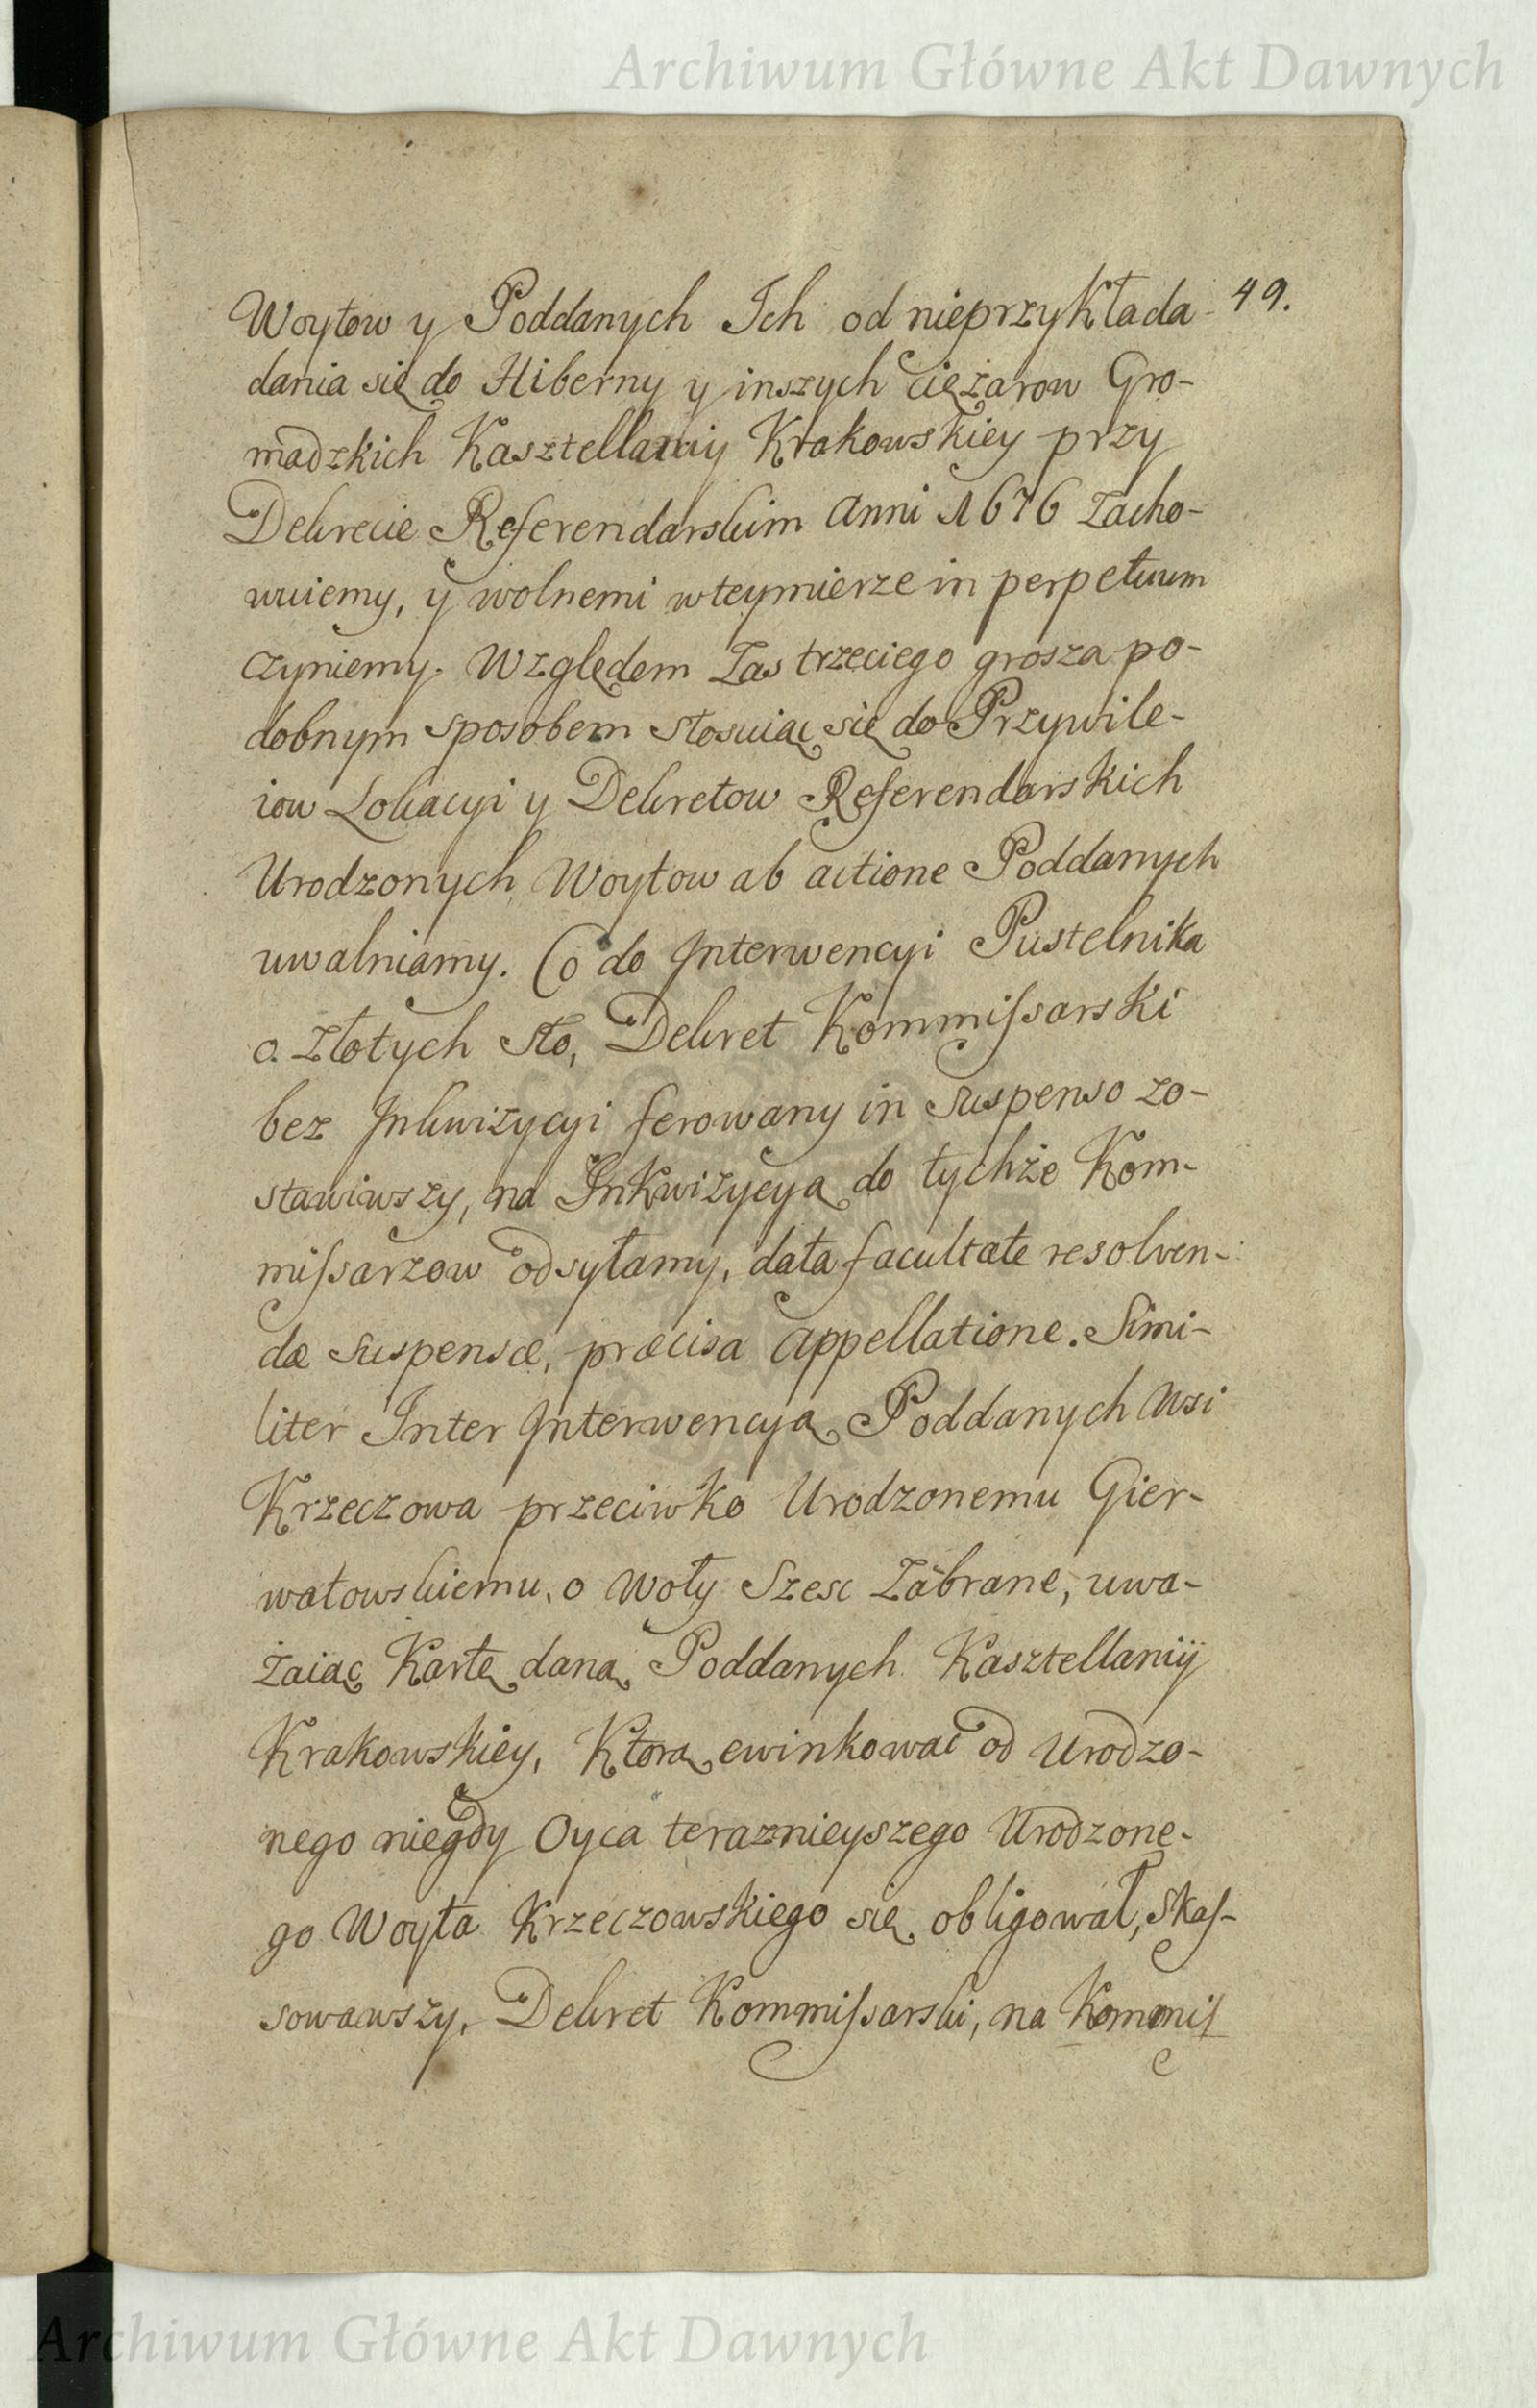 Archiwum Główne Akt Dawnych
49.
Woytow y Poddanych Ich od nieprzykłada-
dania się do Hiberny y inszych ciężarow Gro-
madzkich Kasztellaniy Krakowskiey przy
Dekrecie Referendarskim Anni 1676 Zacho-
wuiemy, y wolnemi wteymierze in perpetuum
czyniemy. Względem Zas trzeciego grosza po-
dobnym sposobem stosuiąc się do Przywile-
iow Lokacyi y Dekretow Referendarskich
Urodzonych Woytow ab actione Poddanych
uwalniamy. Co do Interwencyi Pustelnika
o złotych sto, Dekret Kommiſsarski
bez Inkwizycyi ferowany in suspenso zo-
stawiwszy, na Inkwizycyą do tychże Kom-
miſsarzow odsyłamy, data facultate resolven-
dæ suspensæ, præcisa Appellatione. Simi-
liter Inter Interwencyą Poddanych Wsi
Krzeczowa przeciwko Urodzonemu Gier-
watowskiemu, o Woły Szesc Zabrane, uwa-
żaiąc Kartę daną Poddanych Kasztellaniÿ
Krakowskiey, Ktorą ewinkowac od Urodzo-
nego niegdy Oyca teraznieyszego Urodzone-
go Woyta Krzeczowskiego się obligował, skaſ-
sowawszy, Dekret Kommiſsarski, na Kommiſ
Archiwum Główne Akt Dawnych